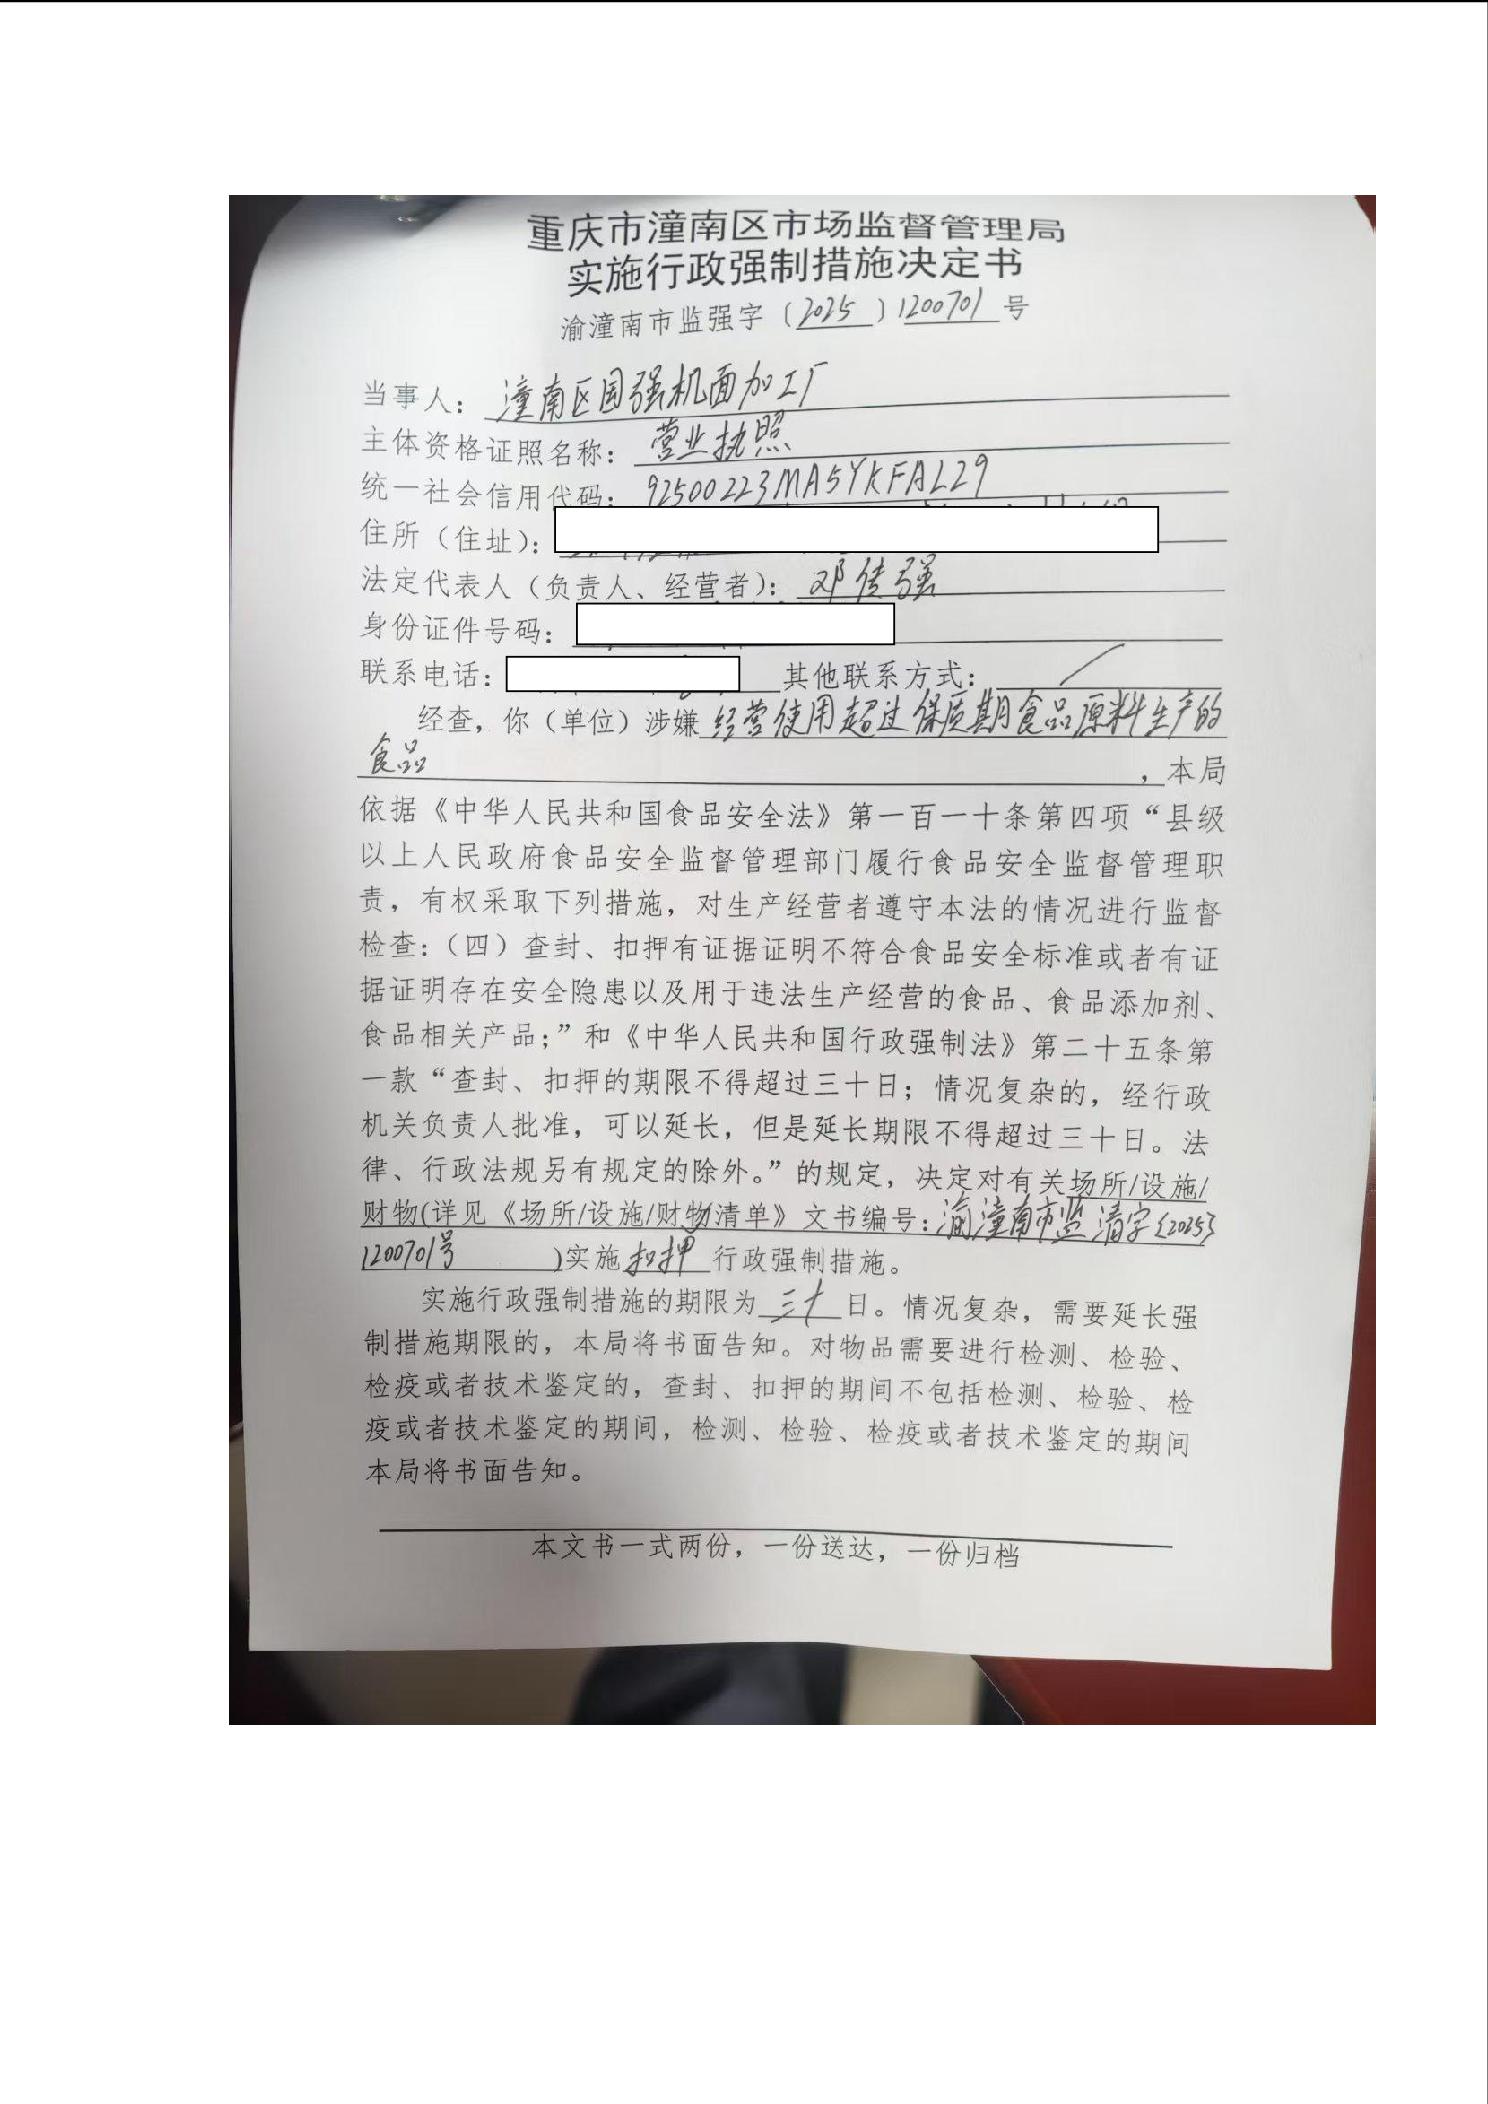 重庆市潼南区市场监督管理局
实施行政强制措施决定书
渝潼南市监强字〔2025〕1200701号
当事人：潼南区国强机面加工厂
主体资格证照名称：营业执照
统一社会信用代码：92500223MA5YKFAL29
住所（住址）：
法定代表人（负责人、经营者）：邓传强
身份证件号码：
联系电话： 其他联系方式：/
经查，你（单位）涉嫌经营使用超过保质期食品原料生产的
食品，本局
依据《中华人民共和国食品安全法》第一百一十条第四项“县级
以上人民政府食品安全监督管理部门履行食品安全监督管理职
责，有权采取下列措施，对生产经营者遵守本法的情况进行监督
检查：（四）查封、扣押有证据证明不符合食品安全标准或者有证
据证明存在安全隐患以及用于违法生产经营的食品、食品添加剂、
食品相关产品；”和《中华人民共和国行政强制法》第二十五条第
一款“查封、扣押的期限不得超过三十日；情况复杂的，经行政
机关负责人批准，可以延长，但是延长期限不得超过三十日。法
律、行政法规另有规定的除外。”的规定，决定对有关场所/设施/
财物(详见《场所/设施/财物清单》文书编号：渝潼南市监清字〔2025〕
1200701号)实施扣押行政强制措施。
实施行政强制措施的期限为三十日。情况复杂，需要延长强
制措施期限的，本局将书面告知。对物品需要进行检测、检验、
检疫或者技术鉴定的，查封、扣押的期间不包括检测、检验、检
疫或者技术鉴定的期间，检测、检验、检疫或者技术鉴定的期间
本局将书面告知。
本文书一式两份，一份送达，一份归档